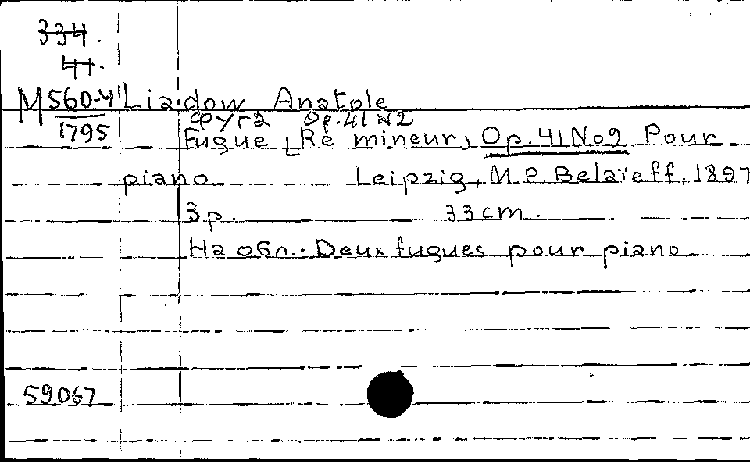 334.
41.
M 560-4 Liadow Anatole
1795 Фуга Op. 41 N2
Fugue, Ré mineur, Op. 41 No 2 Pour
piano Leipzig, M. P. Belaïeff, 1897
3 p. 33 cm.
На обл.: Deux fugues pour piano
59067